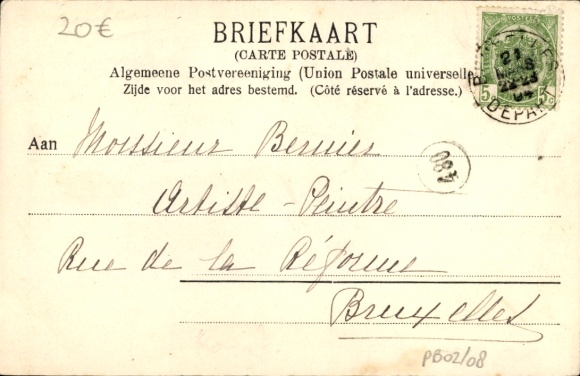 20€
BRIEFKAART
(CARTE POSTALE)
Algemeene Postvereeniging (Union Postale universelle
Zijde voor het adres bestemd. (Côté réservé à l'adresse.)
5 5
21
MARS
22-23
04
DÉPART
Aan Monsieur Bernier
480
Artiste-Peintre
Rue de la Réforme
Bruxelles
PB02/08